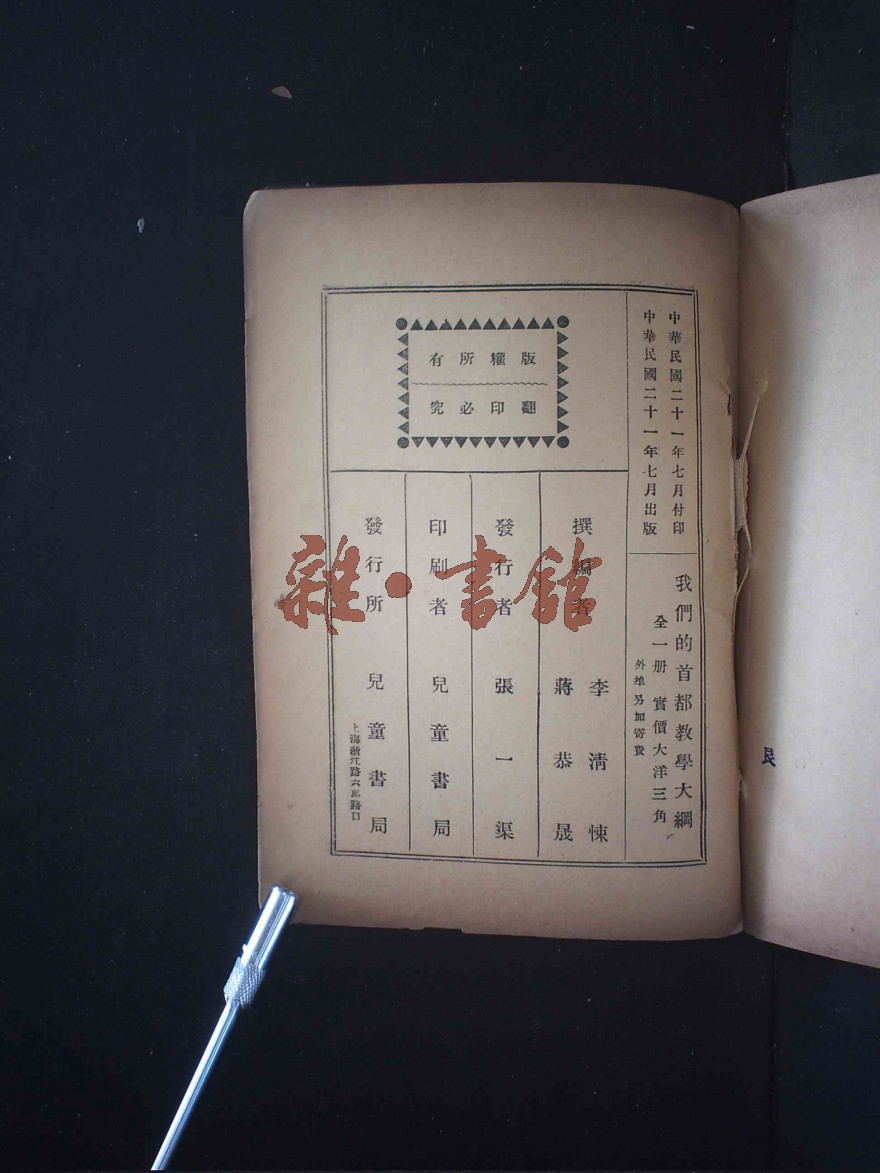 中華民國二十一年七月付印
中華民國二十一年七月出版
我們的首都教學大綱
全一册 實價大洋三角
外埠另加寄費
版權所有
翻印必究
撰編者 李清悚
蔣恭晟
發行者 張一渠
印刷者 兒童書局
發行所 兒童書局
上海浙江路六馬路口
雜·書館
民